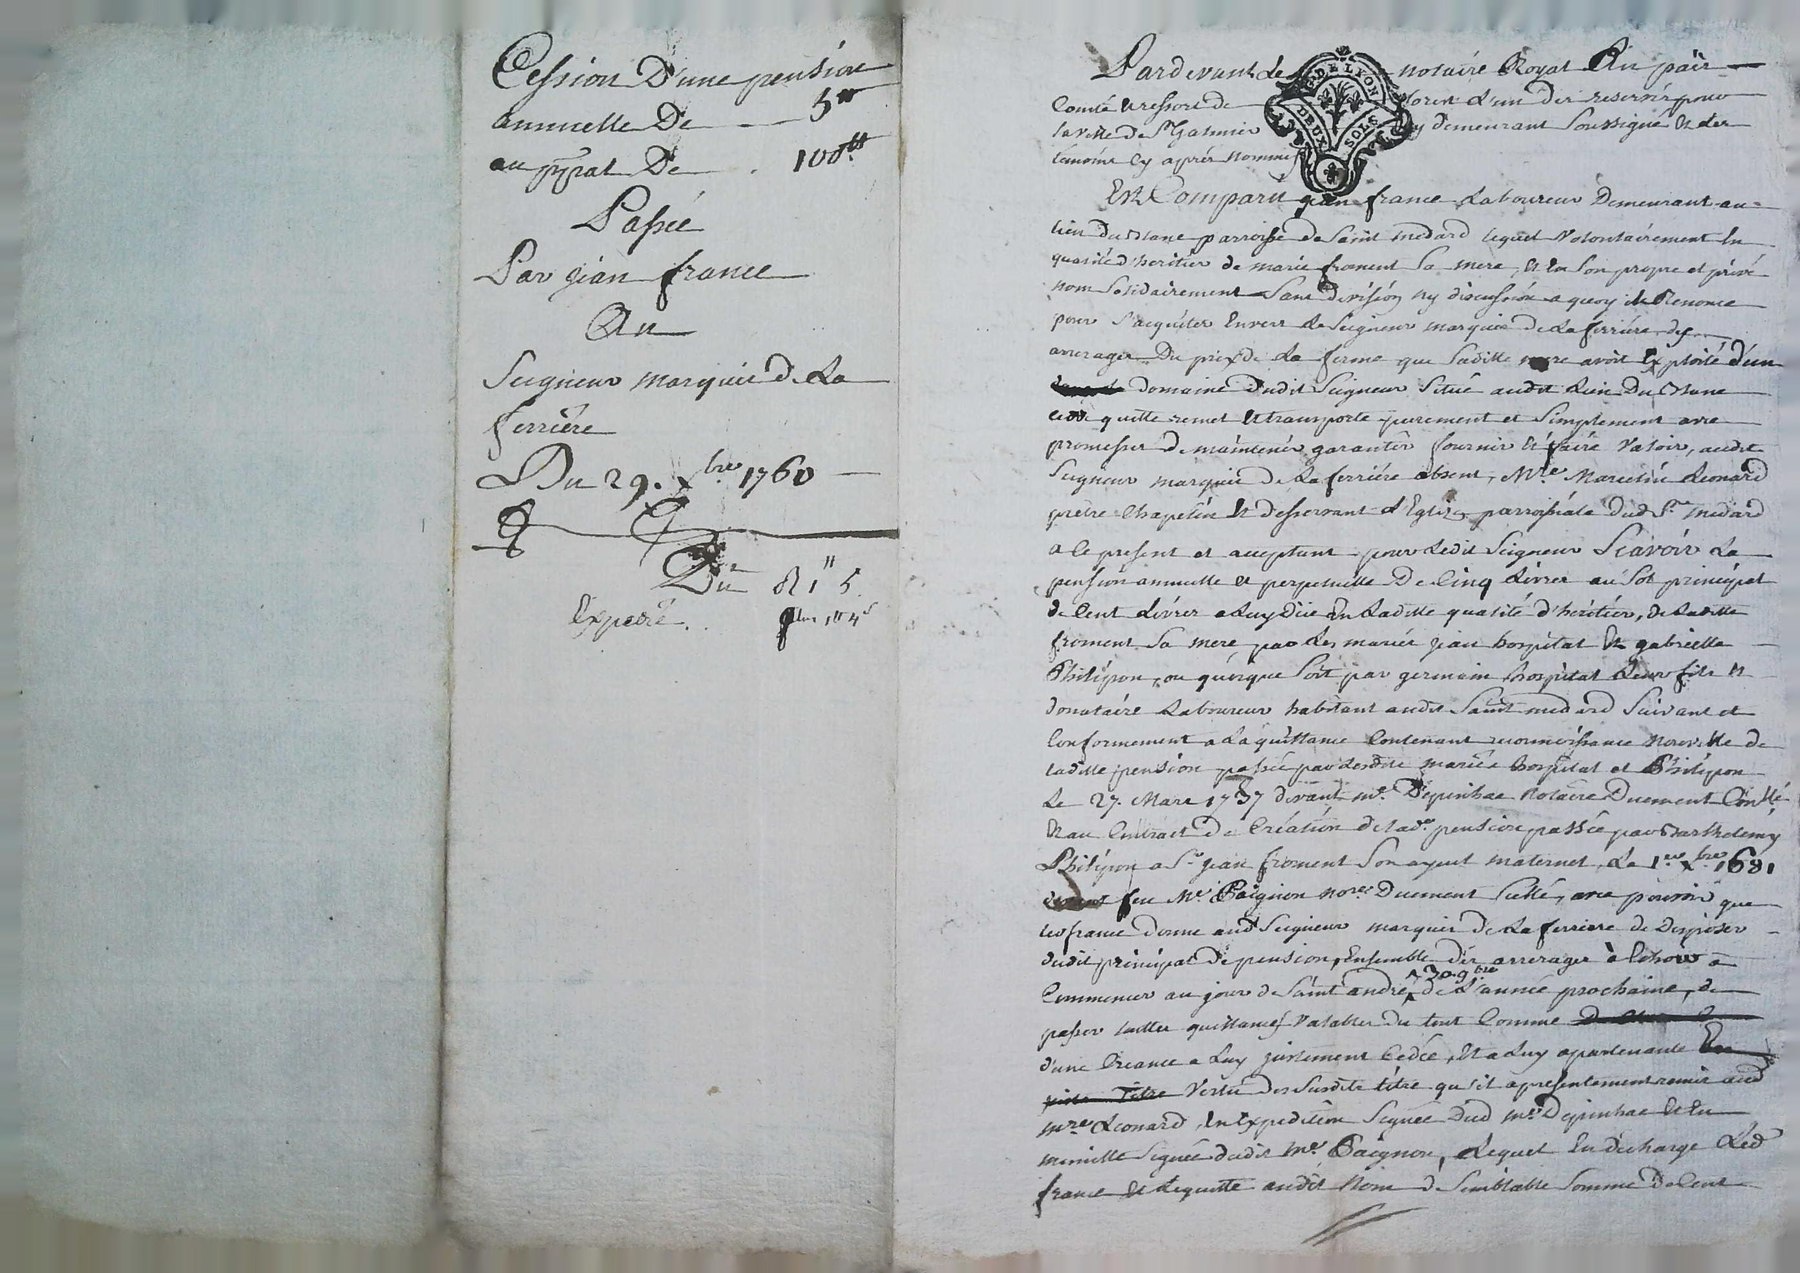 Cession D'une pension
annuelle De 5tt
au ppal De 100tt
Passée
Par jean france
Au
Seigneur marquis de La
ferrière
Du 29. Xbre 1760
Expedié
Pardevant Le notaire Royal Au païs
Comté & ressort de forest L'un des reservés pour
la ville de St Galmier y demeurant soussigné & les
temoins cy après nommés
Est Comparu jean france Laboureur Demeurant au
lieu du parroisse de Saint medard lequel volontairement En
qualité d'heritier de marie froment sa mere, & En son propre et privé
nom solidairement sans division ny discussion a quoy il Renonce
pour s'acquiter Envers Le Seigneur marquis de La ferrière des
arrerages Du prix de La ferme que laditte mere avoit Exploité d'un
domaine dudit Seigneur situé audit Lieu Du
cede quitte remet & transporte purement et simplement avec
promesses de maintenir garantir fournir & faire valoir, audit
Seigneur marquis de La ferrière absent, Mre Marcelin Leonard
prêtre Chapelin & desservant L'Eglise parroissiale dud St medard
a ce present et acceptant pour Ledit Seigneur Scavoir La
pension annuelle & perpetuelle De Cinq Livres au sol principal
de Cent Livres a Luy düe En Laditte qualité d'heritier, de Laditte
froment sa mere, par Les mariés jean hospital & gabrielle
Philipon, ou quoique soit par germain hospital Leur fils &
donataire Laboureur habitant audit Saint medard suivant et
Conformement a La quittance Contenant reconnoissance nouvelle de
laditte pension passée par Lesdits mariés hospital et Philipon
Le 27. Mars 1737 devant me Depinhac Notaire Duement Contllé
& au Contract de Création de lade pension passée par Barthelemy
Philipon a Sr jean froment son ayeul maternel, Le 1er Xbre 1681
feu Me Paignon nore Duement Scellé, avec pouvoir que
led france donne aud Seigneur marquis de La ferriere de Disposer
dudit principal de pension, Ensemble des arrerages à Echoir a
Commencer au jour de Saint andré 30. 9bre de L'année prochaine, de
passer telles quittances valables Du tout Comme
d'une Creance a Luy justement Cedée, & a Luy apartenante En
Vertu des susdits titre qu'il a presentement remis aud
mre Leonard, En Expedition Signée Dud me Depinhac & En
minutte signée dudit me Paignon, Lequel En decharge Led
france & Lequitte audit Nom de semblable somme de Cent